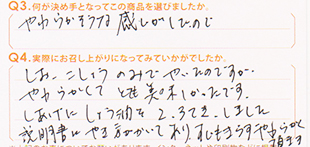 Q3.何が決め手となってこの商品を選びましたか。
やわらかそうな感じがしたので
Q4.実際にお召し上がりになってみていかがでしたか。
しお、こしょうのみでやいたのですが、
やわらかくてとても美味しかったです。
しあげにしょう油を2、3てきしました
説明書にやき方がかいてあり
やわらかく